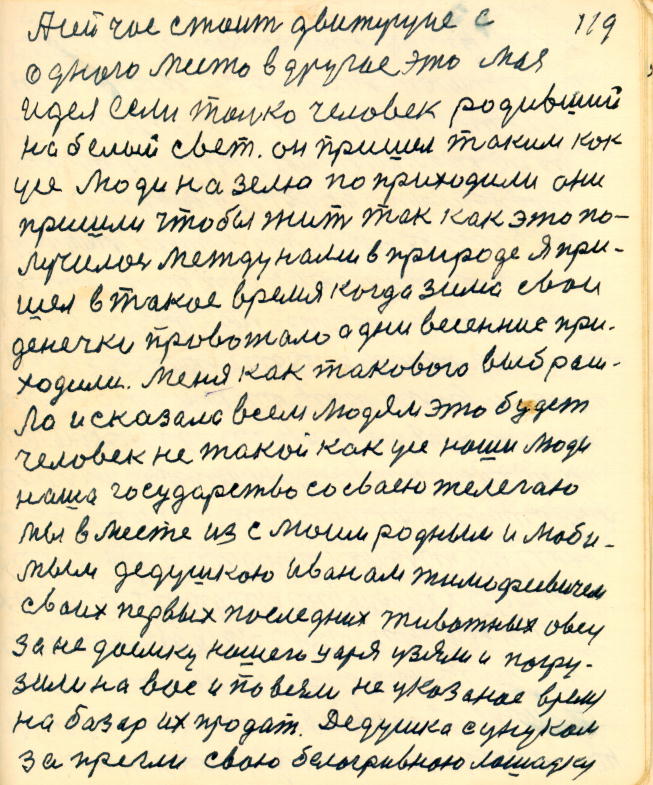 119
А ией час стоит двитущие с
одного место в другае это мая
идея если толко человек родивший
на белый свет. он пришел таким как
усе люди на зелю поприходили они
пришли чтобы жит так как это по-
лучилос между нами в природе я при-
шел в такое время когда зима свои
денечки провожало а дни весенние при-
ходили. меня как такового выбраси-
ло и сказала всем людям это будет
человек не такой как усе наши люди
наша государство со сваею телегаю
мы в месте из с моим родным и люби-
мым дедушкою Иванам тимофиевичем
своих первых последних животных овец
за не доимку нашего царя узяли и погру-
зили на вос и повезли не указаное время
на базар их продат. Дедушка с унуком
за прегли свою белогривною лошадку